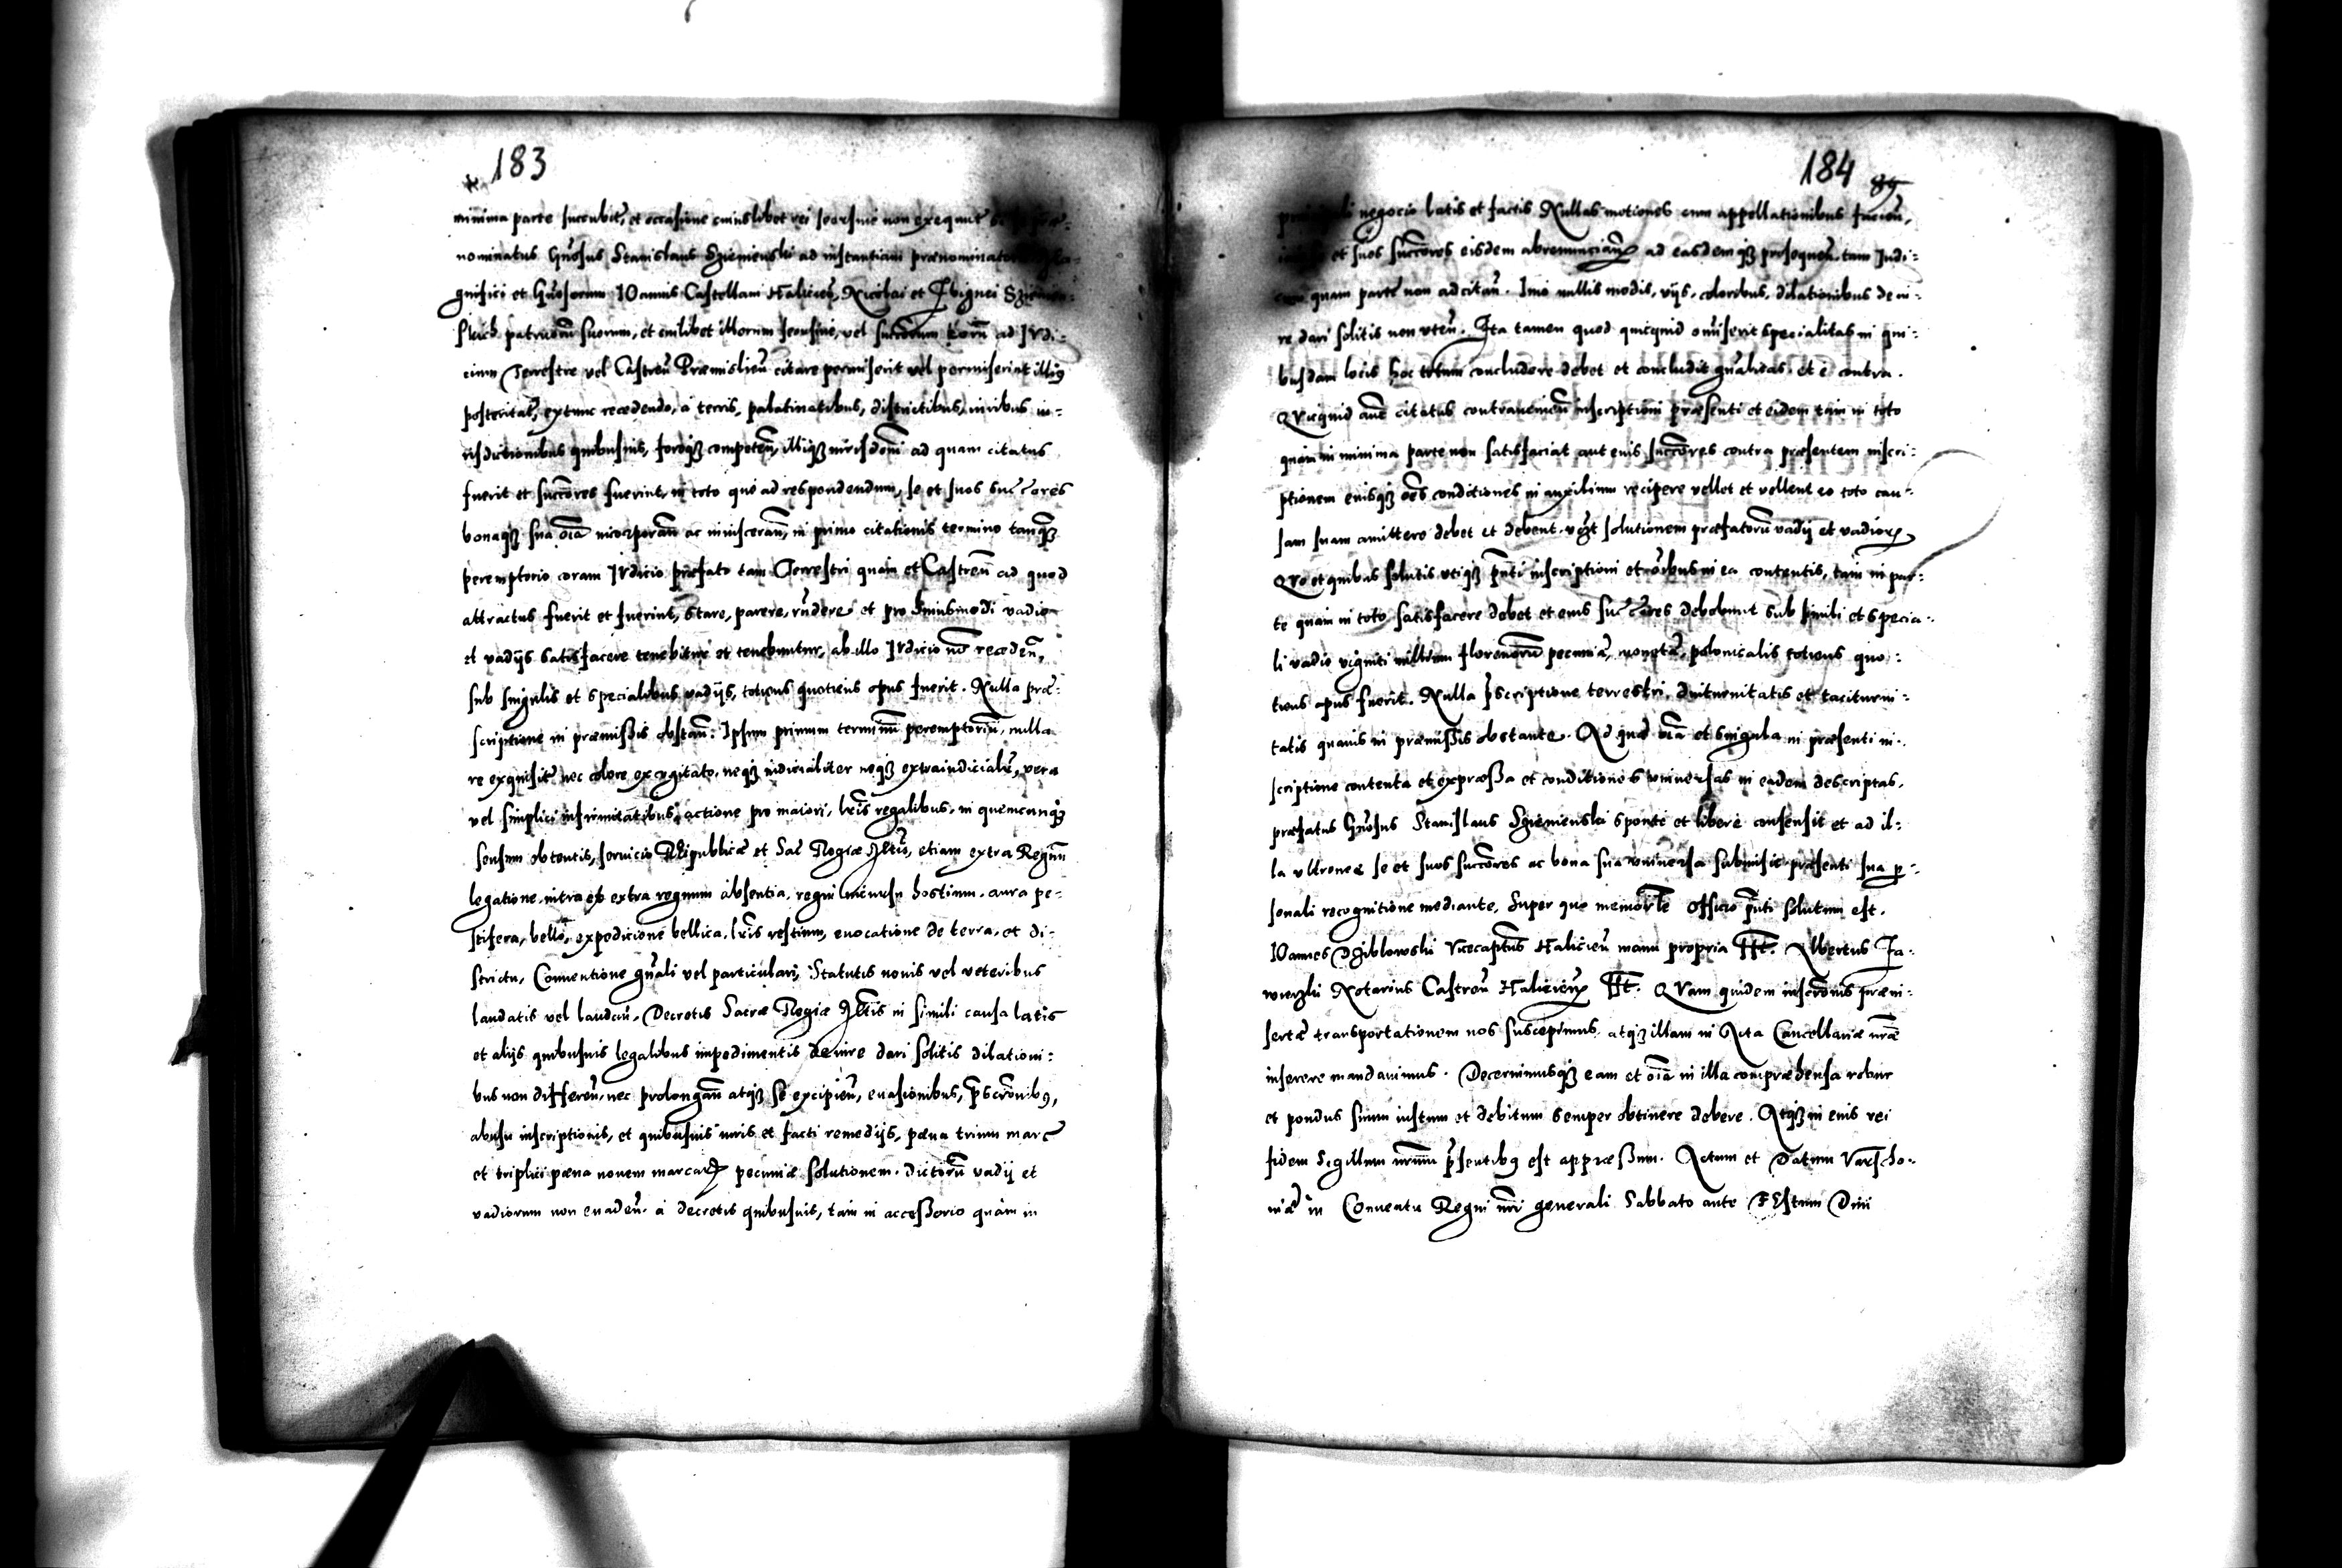 183
minima parte succubit, et occasione cuiuslibet rei seorsiue non exequut
nominatus Gnosus Stanislaus Szienienski ad instantiam prænominator
gnifici et Gnosorum IOannis Castellani Halicien, Nicolai et Zbignei Szienien:
skich patruorũ suorum, et cuilibet illorum seorsiue, vel succorum eorũ ad IVdi:
cium Terrestre vel Castreñ Præmislieñ citare permiserit vel permiserint illiq
posteritat, extunc recedendo, a terris, palatinatibus, districtibus, iuribus iu-
risdictionibus quibusuis, foroq3 competeñ, illiq3 iurisdoni ad quam citatus
fuerit et succores fuerint, in toto quo ad respondendum, se et suos succores
bonaq3 sua oia incorporañ ac inuiscerañ, in primo citationis termino tanq3
peremptorio coram IVdicio præfato tam Terrestri quàm et Castreñ ad quod
attractus fuerit et fuerint, stare, parere, rñdere et pro huiusmodi vadio
et vadijs satisfacere tenebitur et tenebuntur, ab illo IVdicio nõ recedeñ,
sub singulis et specialibus vadijs, totiens quotiens opus fuerit. Nulla præ:
scriptione in præmissis obstañ: Ipsum primum terminũ peremptoriũ, nulla
re exquisit nec colore excogitato, neq3 iudicialiter neq3 extraiudicialr, vera
vel simplici infirmitatibus, actione pro maiori, lris regalibus, in quemcunq3
sensum obtentis, seruicio REipublicæ et Sac Regiæ Mtis, etiam extra Regnũ
legatione, intra et extra regnum absentia, regni incursu hostium, aura pe-
stifera, bello, expedicione bellica, lris restium, euocatione de terra, et di-
strictu, Conuentione gñali vel particulari, Statutis nouis vel veteribus
laudatis vel laudañ, Decretis Sacræ Regiæ Mtis in simili causa latis
et alijs quibusuis legalibus impedimentis de iure dari solitis dilationi:
bus non differeñ, nec prolongañ atq3 se excipieñ, euasionibus, pscronibq,
abusu inscriptionis, et quibusuis iuris et facti remedijs, pæna trium marc
et triplici pæna nouem marcar pecuniæ solutionem, dictorũ vadij et
vadiorum non euadeñ. à decretis quibusuis, tam in accessorio quàm in
184 89
negocio latis et factis Nullas motiones cum appellationibus facieñ,
et suos succores eisdem abrenuncian ad easdem q3 prosequeñ, tam Iudi:
quam parte non adcitañ. Imo nullis modis, vijs, coloribus, dilationibus de iu:
re dari solitis non vteñ. Ita tamen quod quicquid omiserit specialitas in qui:
busdam locis hoc totum concludere debet et concludit gñalitas et è contra.
QVicquid aut citatus contraueniuñ inscriptioni præsenti et eidem tam in toto
quàm in minima parte non satisfaciat aut eius succores contra præsentem inscri:
ptionem eiusq3 oes conditiones in auxilium recipere vellet et vellent eo toto cau-
sam suam amittere debet et debent solutionem præfatorũ vadij et vadior
QVo et quibus solutis vtiq3 pnti inscriptioni et oibus in ea contentis, tam in par:
te quàm in toto satisfacere debet et eius succores debebunt sub simili et specia:
li vadio viginti millium florenorũ pecuniæ, monetæ, polonicalis totiens quo:
tiens opus fuerit. Nulla pscriptione terrestri, diuturnitatis et taciturni:
tatis quauis in præmissis obstante. Ad quæ oia et singula in præsenti in:
scriptione contenta et expræssa et conditiones vniuersas in eadem descriptas,
præfatus Gnosus Stanislaus Szienienski sponte et libere consensit et ad il:
la vltronee se et suos succores ac bona sua vniuersa submisit præsenti sua p:
sonali recognitione mediante, Super quo memorle officio pnti solutum est.
IOannes Dziblowski Vicecaptñs Halicieñ manu propria sst. Albertus Ja:
wierzki Notarius Castreñ Halicieñ sst. QVam quidem inscronis præin:
sertæ transportationem nos suscepimus, atq3 illam in Acta Cancellariæ nræ
inserere mandauimus. Decernimusq3 eam et oia in illa compræhensa robur
et pondus suum iustum et debitum semper obtinere debere. Atq3 in eius rei
fidem Sigillum nrum psentibq est appræssum. Actum et Datum Varscho:
uiæ in Conuentu Regni nri generali Sabbato ante FEstum Diui